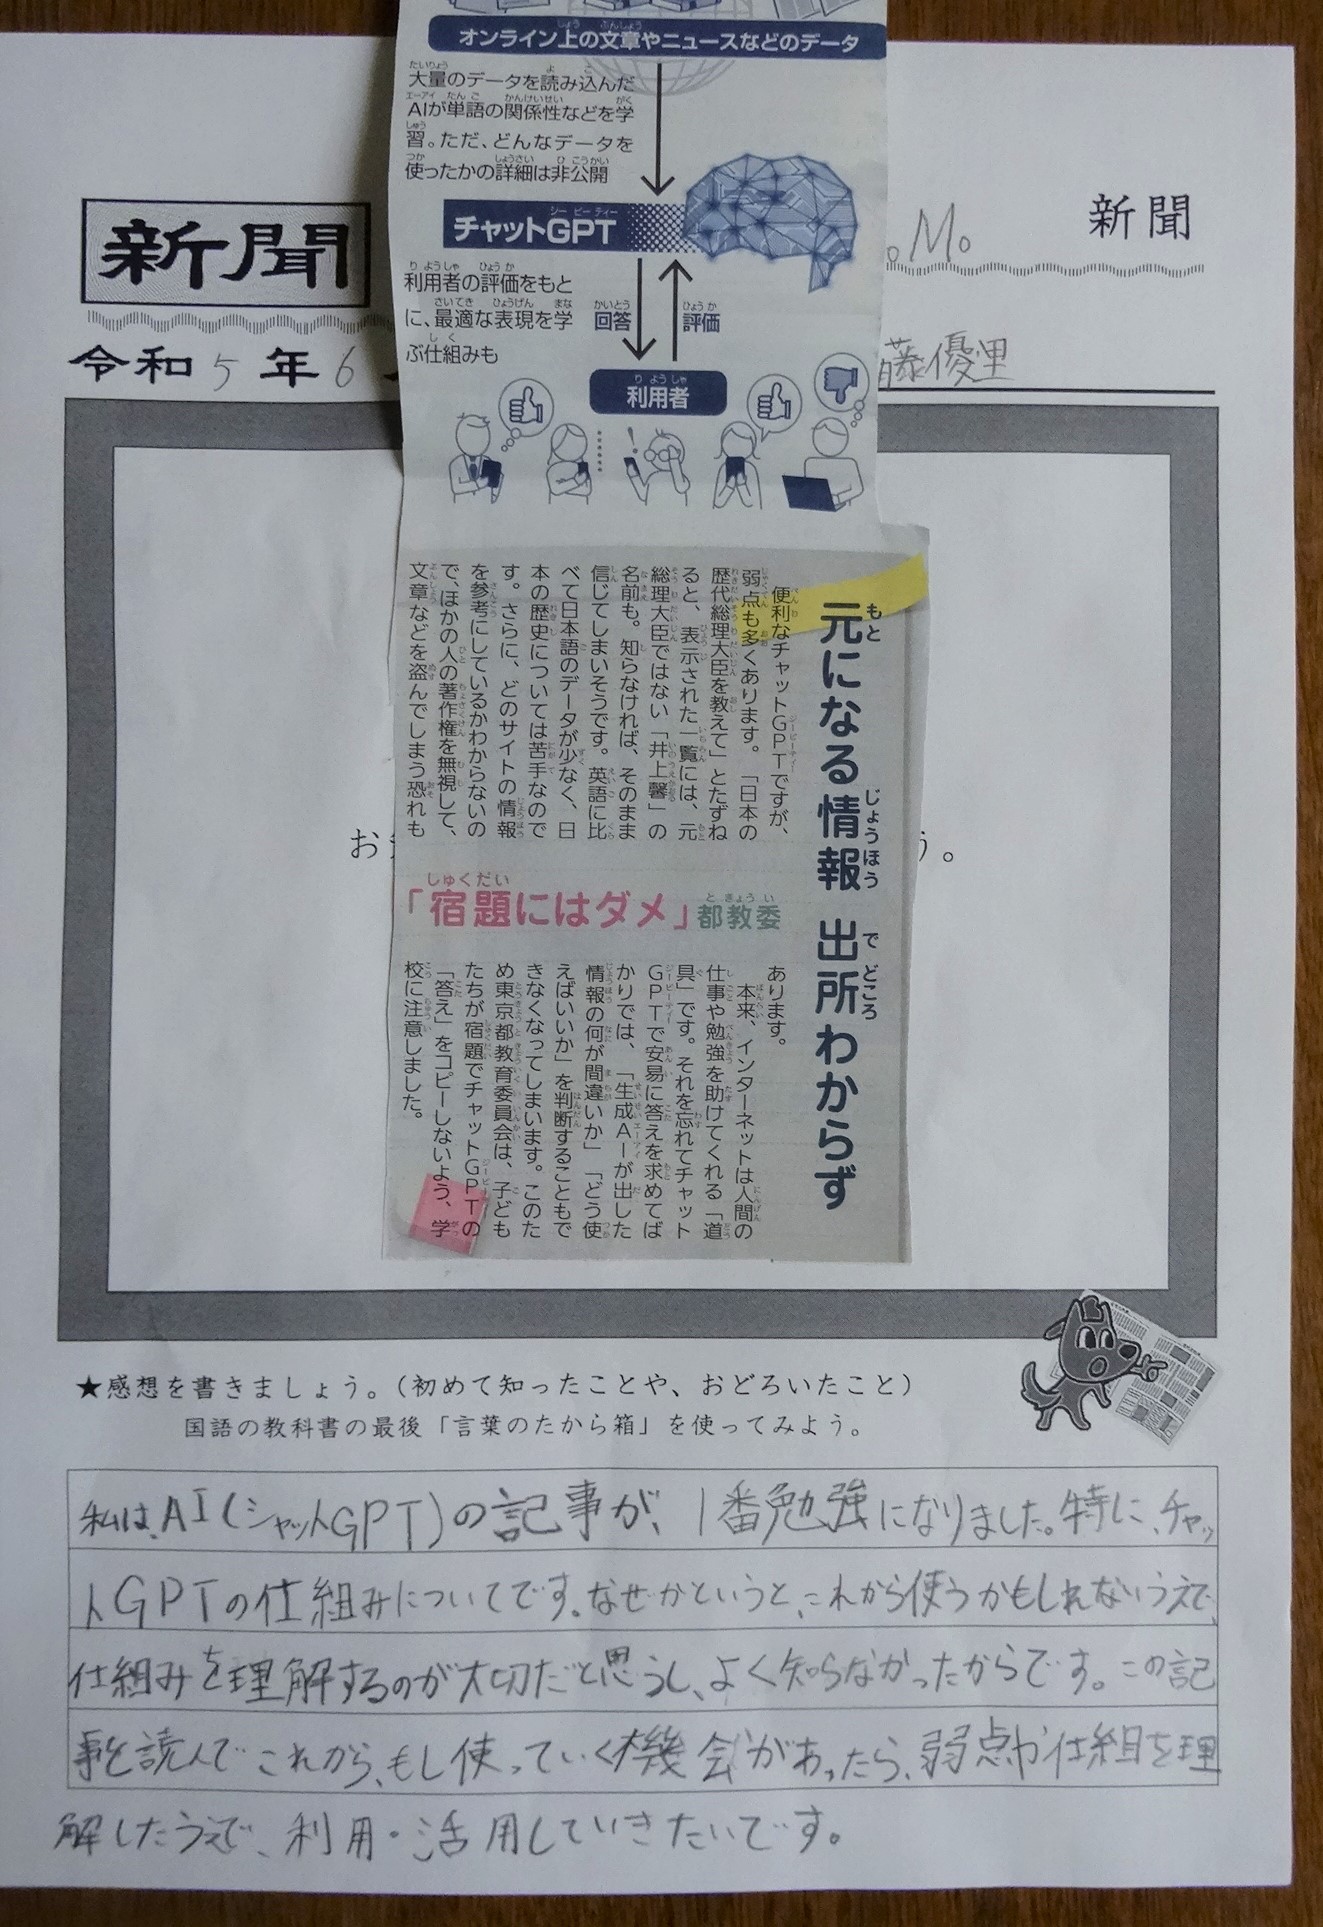 オンライン上の文章やニュースなどのデータ
大量のデータを読み込んだ
AIが単語の関係性などを学
習。ただ、どんなデータを
使ったかの詳細は非公開
チャットGPT
利用者の評価をもと
に、最適な表現を学
ぶ仕組みも
回答
評価
利用者
新聞
M。
新聞
令和5年6
藤優里
元になる情報 出所わからず
便利なチャットGPTですが、
弱点も多くあります。「日本の
歴代総理大臣を教えて」とたずね
ると、表示された一覧には、元
総理大臣ではない「井上馨」の
名前も。知らなければ、そのまま
信じてしまいそうです。英語に比
べて日本語のデータが少なく、日
本の歴史については苦手なので
す。さらに、どのサイトの情報
を参考にしているかわからないの
で、ほかの人の著作権を無視して、
文章などを盗んでしまう恐れも
「宿題にはダメ」都教委
あります。
本来、インターネットは人間の
仕事や勉強を助けてくれる「道
具」です。それを忘れてチャット
GPTで安易に答えを求めてば
かりでは、「生成AIが出した
情報の何が間違いか」「どう使
えばいいか」を判断することもで
きなくなってしまいます。このた
め東京都教育委員会は、子ども
たちが宿題でチャットGPTの
「答え」をコピーしないよう、学
校に注意しました。
お
う。
★感想を書きましょう。(初めて知ったことや、おどろいたこと)
国語の教科書の最後「言葉のたから箱」を使ってみよう。
私は、AI(シャットGPT)の記事が、1番勉強になりました。特に、チャッ
トGPTの仕組みについてです。なぜかというと、これから使うかもしれないうえで、
仕組みを理解するのが大切だと思うし、よく知らなかったからです。この記
事を読んでこれから、もし使っていく機会があったら、弱点や仕組を理
解したうえで、利用・活用していきたいです。